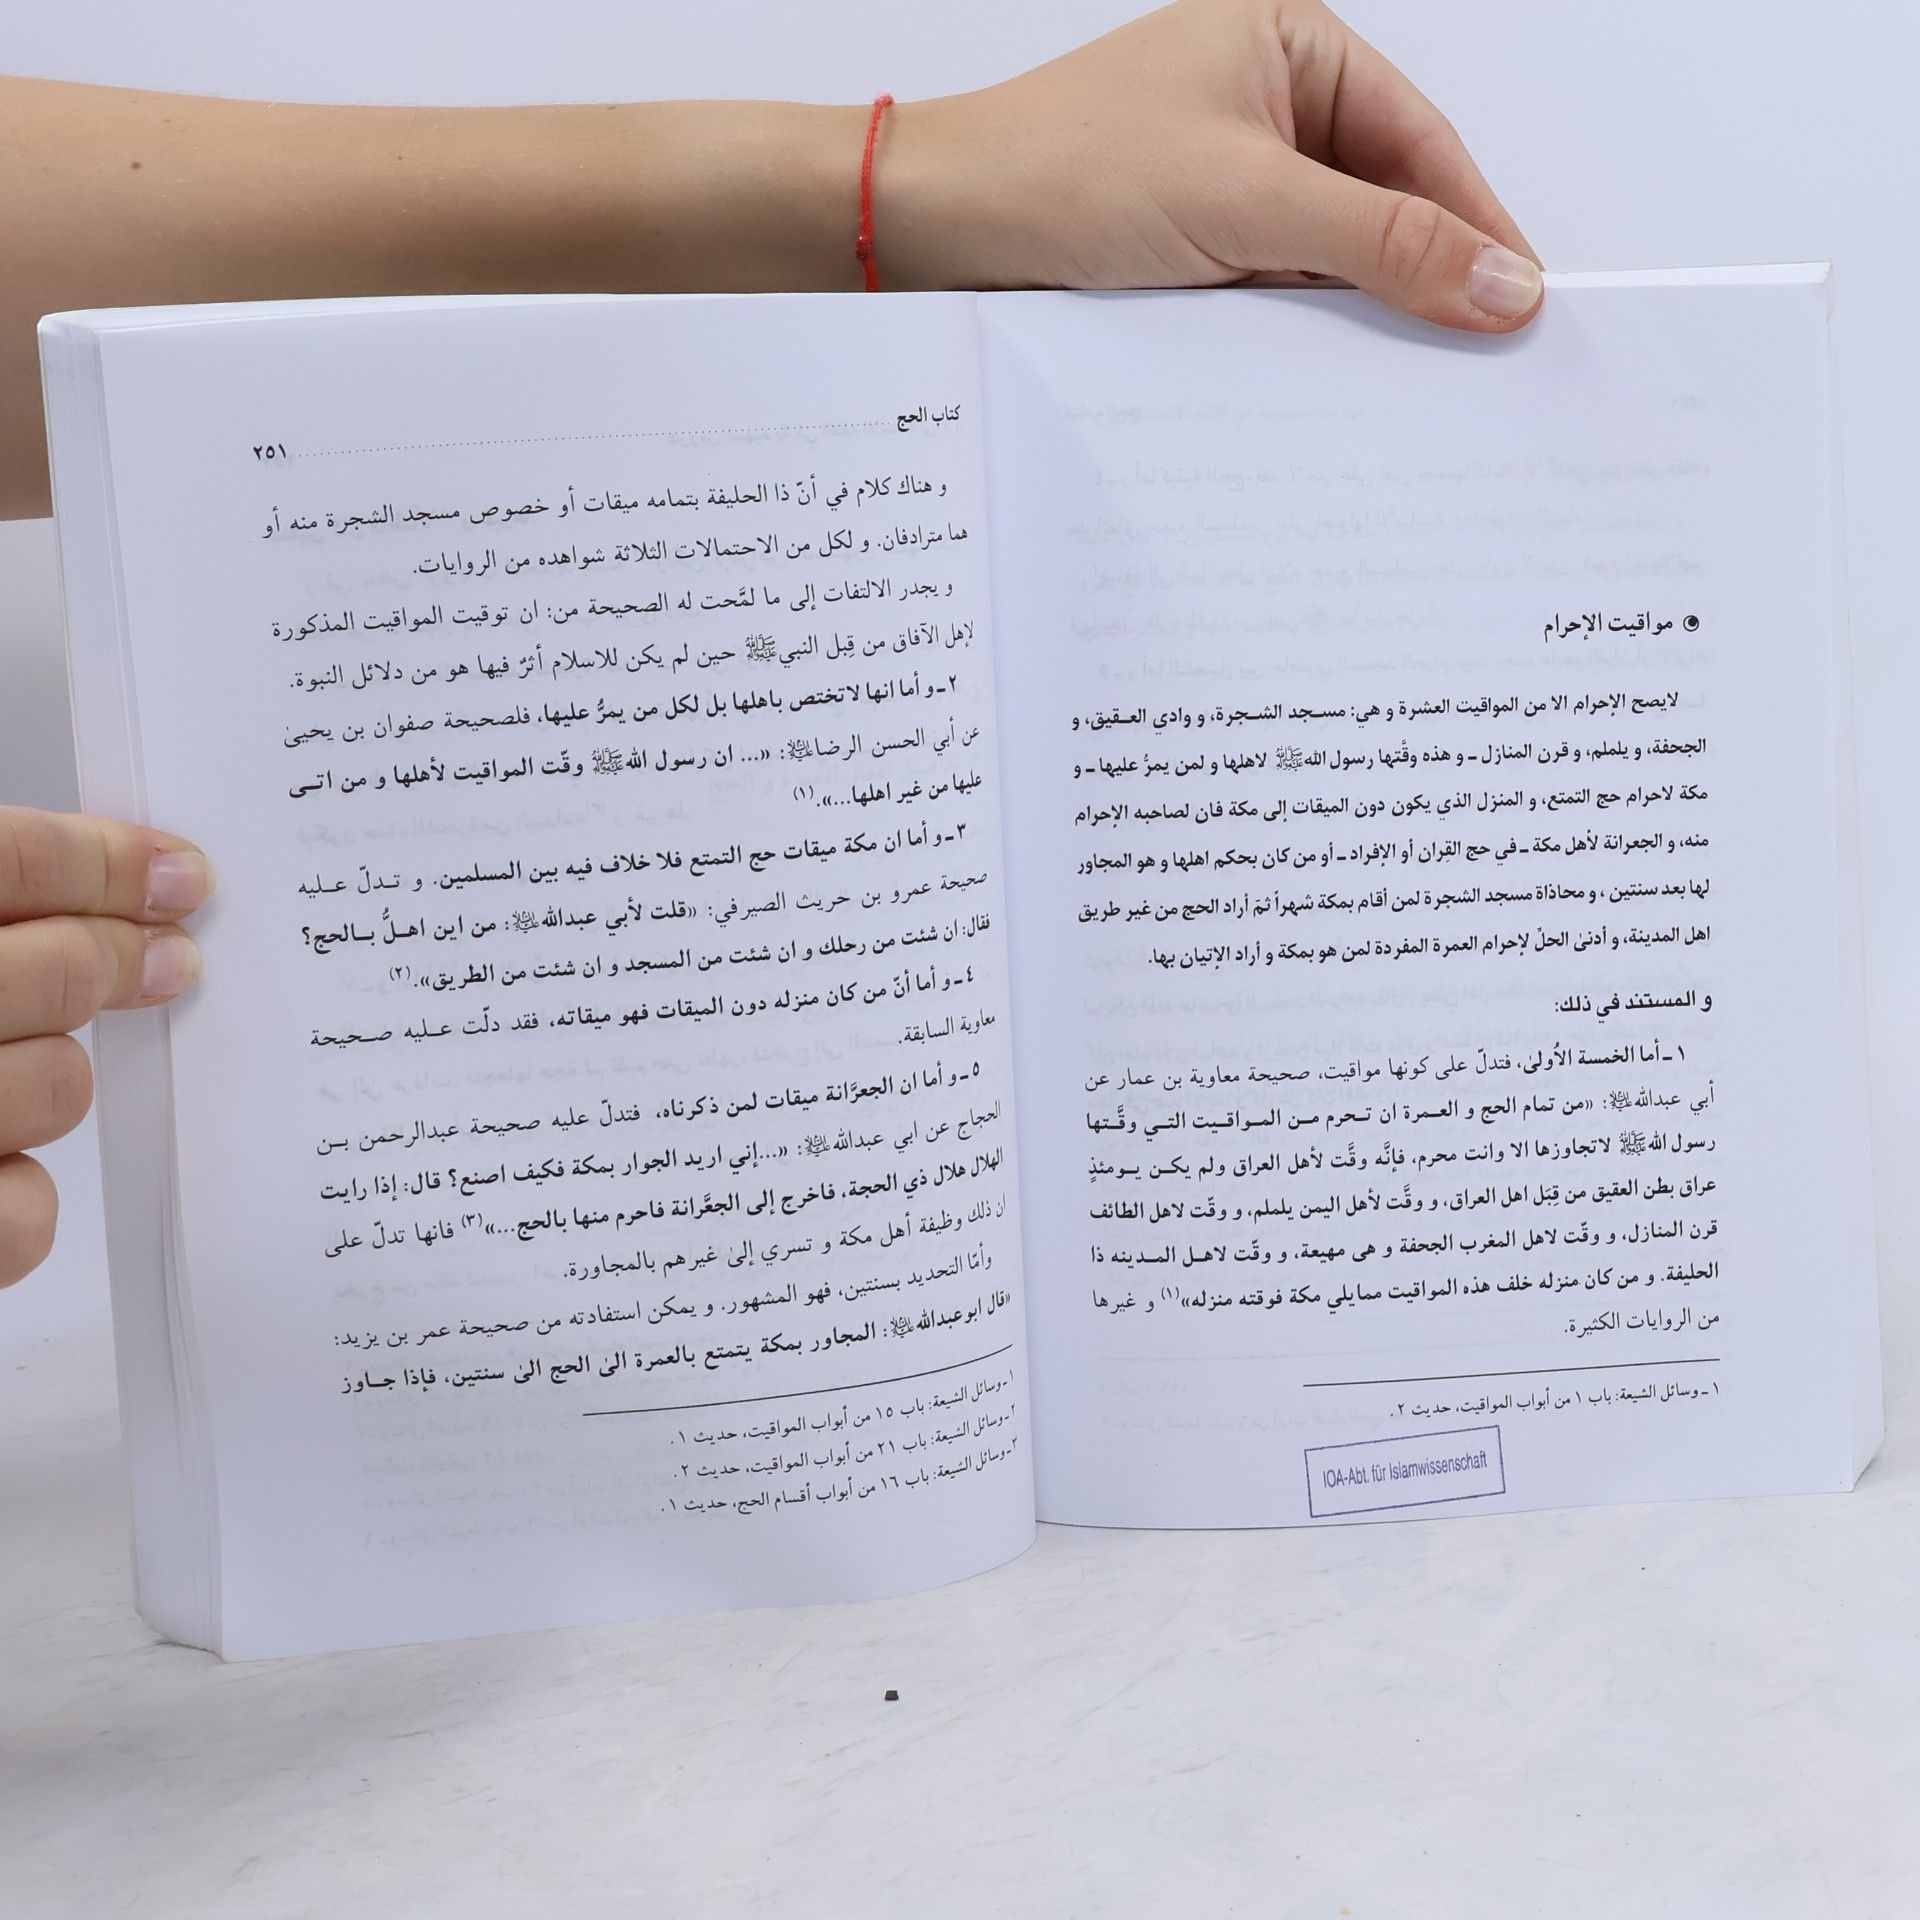 ◉ مواقيت الإحرام
لايصح الإحرام الا من المواقيت العشرة و هي: مسـجد الشـجرة، و وادي العـقيق، و
الجحفة، و يلملم، و قرن المنازل ـ و هذه وقَّتها رسول الله ﷺ لاهلها و لمن يمرُّ عليها ـ و
مكة لاحرام حج التمتع، و المنزل الذي يكون دون الميقات إلى مكة فان لصاحبه الإحرام
منه، و الجعرانة لأهل مكة ـ في حج القِران أو الإفراد ـ أو من كان بحكم اهلها و هو المجاور
لها بعد سنتين ، و محاذاة مسجد الشجرة لمن أقام بمكة شهراً ثمّ أراد الحج من غير طريق
اهل المدينة، و أدنىٰ الحلّ لإحرام العمرة المفردة لمن هو بمكة و أراد الإتيان بها.
و المستند في ذلك:
١ ـ أما الخمسة الأُولىٰ، فتدلّ على كونها مواقيت، صحيحة معاوية بن عمار عن
أبي عبدالله ﵇: «من تمام الحج و العـمرة ان تـحرم مـن المـواقـيت التـي وقَّـتها
رسول الله ﷺ لاتجاوزها الا وانت محرم، فإنَّه وقَّت لأهل العراق ولم يكـن يـومئذٍ
عراق بطن العقيق من قِبَل اهل العراق، و وقَّت لأهل اليمن يلملم، و وقّت لاهل الطائف
قرن المنازل، و وقّت لاهل المغرب الجحفة و هى مهيعة، و وقّت لاهـل المـدينه ذا
الحليفة. و من كان منزله خلف هذه المواقيت ممايلي مكة فوقته منزله»(١) و غيرها
من الروايات الكثيرة.
١ ـ وسائل الشيعة: باب ١ من أبواب المواقيت، حديث ٢.
IOA-Abt. für Islamwissenschaft
كتاب الحج ........ ٢٥١
و هناك كلام في أنّ ذا الحليفة بتمامه ميقات أو خصوص مسجد الشجرة منه أو
هما مترادفان. و لكل من الاحتمالات الثلاثة شواهده من الروايات.
و يجدر الالتفات إلى ما لمَّحت له الصحيحة من: ان توقيت المواقيت المذكورة
لإهل الآفاق من قِبل النبي ﷺ حين لم يكن للاسلام أثرٌ فيها هو من دلائل النبوة.
٢ ـ و أما انها لاتختص باهلها بل لكل من يمرُّ عليها، فلصحيحة صفوان بن يحيىٰ
عن أبي الحسن الرضا ﵇: «... ان رسول الله ﷺ وقّت المواقيت لأهلها و من اتـى
عليها من غير اهلها...».(١)
٣ ـ و أما ان مكة ميقات حج التمتع فلا خلاف فيه بين المسلمين. و تـدلّ عـليه
صحيحة عمرو بن حريث الصيرفي: «قلت لأبي عبدالله ﵇: من اين اهـلُّ بـالحج؟
فقال: ان شئت من رحلك و ان شئت من المسجد و ان شئت من الطريق».(٢)
٤ ـ و أما أنّ من كان منزله دون الميقات فهو ميقاته، فقد دلّت عـليه صـحيحة
معاوية السابقة.
٥ ـ و أما ان الجعرَّانة ميقات لمن ذكرناه، فتدلّ عليه صحيحة عبدالرحمن بـن
الحجاج عن ابي عبدالله ﵇: «...إني اريد الجوار بمكة فكيف اصنع؟ قال: إذا رايت
الهلال هلال ذي الحجة، فاخرج إلى الجعَّرانة فاحرم منها بالحج...»(٣) فانها تدلّ على
ان ذلك وظيفة أهل مكة و تسري إلىٰ غيرهم بالمجاورة.
وأمّا التحديد بسنتين، فهو المشهور. و يمكن استفادته من صحيحة عمر بن يزيد:
«قال ابوعبدالله ﵇: المجاور بمكة يتمتع بالعمرة الىٰ الحج الىٰ سنتين، فإذا جـاوز
١ ـ وسائل الشيعة: باب ١٥ من أبواب المواقيت، حديث ١.
٢ ـ وسائل الشيعة: باب ٢١ من أبواب المواقيت، حديث ٢.
٣ ـ وسائل الشيعة: باب ١٦ من أبواب أقسام الحج، حديث ١.